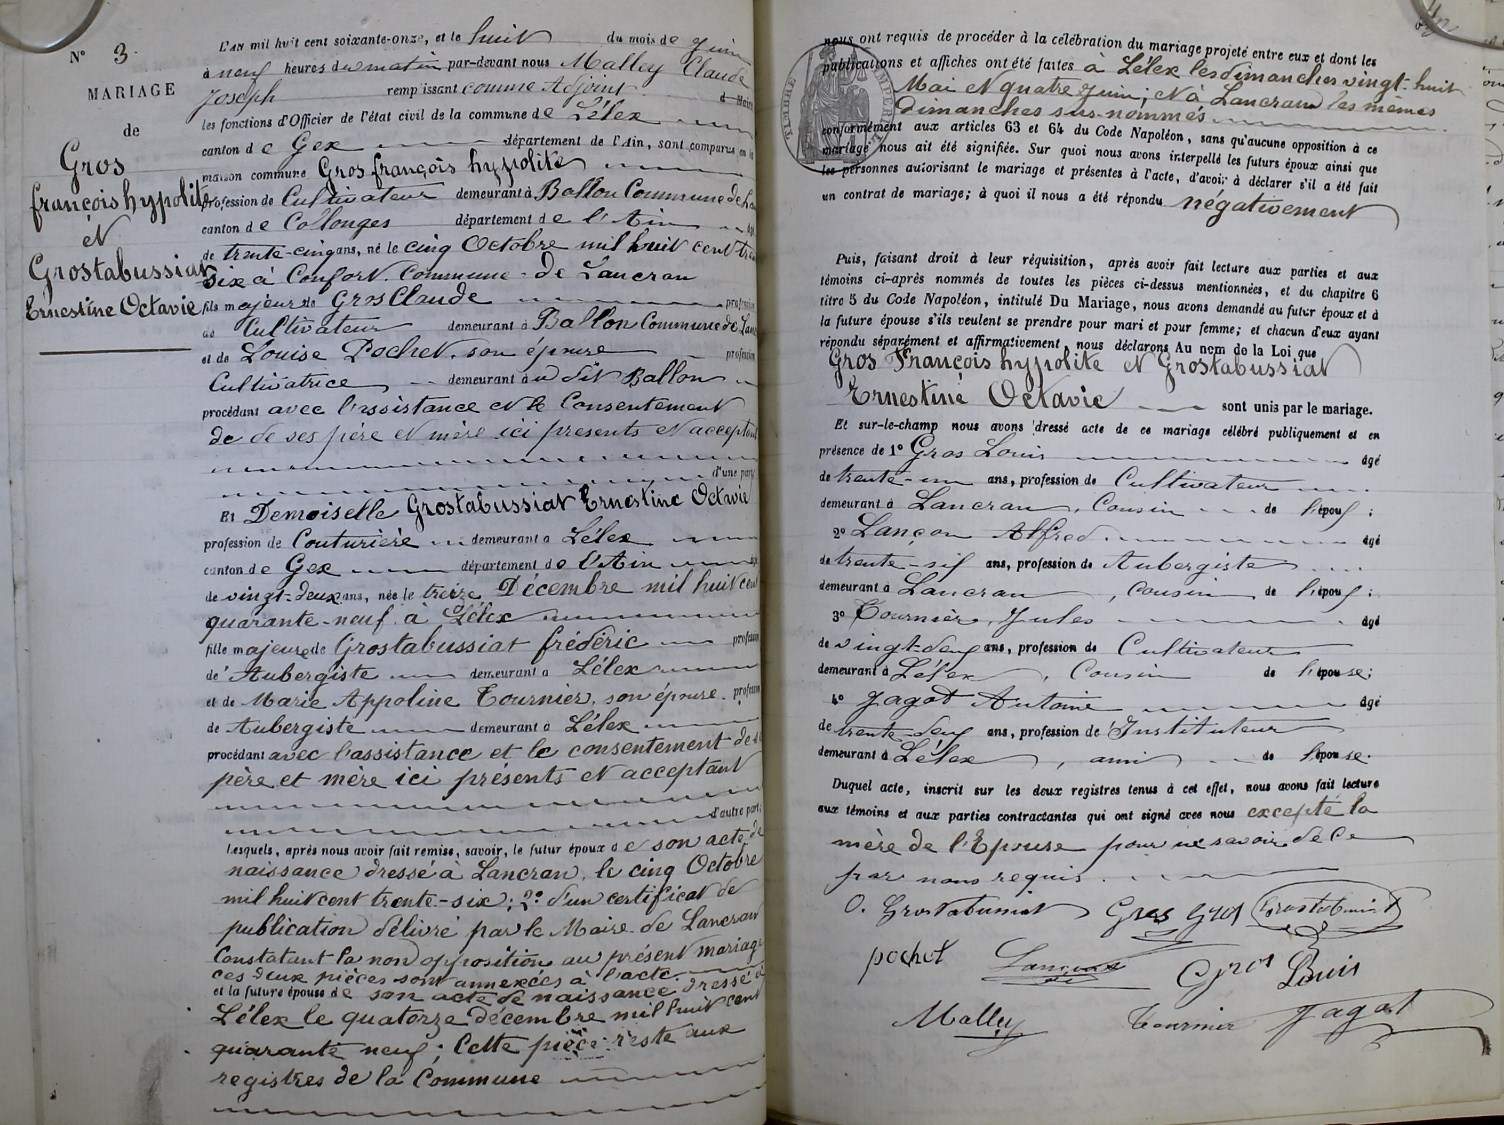 N° 3
MARIAGE
de
Gros
françois hypolite
et
Grostabussiat
Ernestine Octavie
L'AN mil huit cent soixante-onze, et le huit du mois de Juin
à neuf heures du matin par-devant nous Malley Claude
Joseph remplissant comme Adjoint
les fonctions d'Officier de l'état civil de la commune de Lélex
canton de Gex département de l'Ain, sont comparus en la
maison commune Gros françois hypolite
profession de Cultivateur demeurant à Ballon Commune de
canton de Collonges département de l'Ain
de trente-cinq ans, né le cinq Octobre mil huit cent
six à Confort Commune de Lancran
fils majeur de Gros Claude profession
de Cultivateur demeurant à Ballon Commune de
et de Louise Pochet, son épouse profession
Cultivatrice demeurant au dit Ballon
procédant avec l'assistance et le Consentement
de de ses père et mère ici présents et acceptant
d'une part
Et Demoiselle Grostabussiat Ernestine Octavie
profession de Couturière demeurant à Lélex
canton de Gex département de l'Ain
de vingt-deux ans, née le treize Décembre mil huit cent
quarante-neuf à Lélex
fille majeure de Grostabussiat frédéric profession
de Aubergiste demeurant à Lélex
et de Marie Appoline Tournier, son épouse profession
de Aubergiste demeurant à Lélex
procédant avec l'assistance et le consentement de
père et mère ici présents et acceptant
d'autre part;
Lesquels, après nous avoir fait remise, savoir, le futur époux de son acte de
naissance dressé à Lancran, le cinq Octobre
mil huit cent trente-six; 2° d'un certificat de
publication délivré par le Maire de Lancran
Constatant la non opposition au présent mariage
ces deux pièces sont annexées à l'acte.
et la future épouse de son acte de naissance dressé à
Lélex le quatorze décembre mil huit cent
quarante neuf; Cette pièce reste aux
registres de la Commune
nous ont requis de procéder à la célébration du mariage projeté entre eux et dont les
publications et affiches ont été faites à Lélex les dimanches vingt-huit
Mai et quatre Juin; et à Lancran les mêmes
Dimanches sus-nommés
TIMBRE IMPERIAL
conformément aux articles 63 et 64 du Code Napoléon, sans qu'aucune opposition à ce
mariage nous ait été signifiée. Sur quoi nous avons interpellé les futurs époux ainsi que
les personnes autorisant le mariage et présentes à l'acte, d'avoir à déclarer s'il a été fait
un contrat de mariage; à quoi il nous a été répondu négativement
Puis, faisant droit à leur réquisition, après avoir fait lecture aux parties et aux
témoins ci-après nommés de toutes les pièces ci-dessus mentionnées, et du chapitre 6
titre 5 du Code Napoléon, intitulé Du Mariage, nous avons demandé au futur époux et à
la future épouse s'ils veulent se prendre pour mari et pour femme; et chacun d'eux ayant
répondu séparément et affirmativement, nous déclarons Au nom de la Loi que
Gros François hypolite et Grostabussiat
Ernestine Octavie sont unis par le mariage.
Et sur-le-champ nous avons dressé acte de ce mariage célébré publiquement et en
présence de 1° Gros Louis âgé
de trente-un ans, profession de Cultivateur
demeurant à Lancran, Cousin de l'époux;
2° Lançon Alfred âgé
de trente-six ans, profession de Aubergiste
demeurant à Lancran, cousin de l'époux;
3° Tournier Jules âgé
de vingt-deux ans, profession de Cultivateur
demeurant à Lélex, Cousin de l'épouse;
4° Jagot Antoine âgé
de trente-deux ans, profession d'Instituteur
demeurant à Lélex, ami de l'épouse.
Duquel acte, inscrit sur les deux registres tenus à cet effet, nous avons fait lecture
aux témoins et aux parties contractantes qui ont signé avec nous excepté la
mère de l'Epouse pour ne savoir de ce
par nous requis
O. Grostabussiat Gros Gros Grostabussiat
pochet Lançon Gros Louis
Malley Tournier Jagot